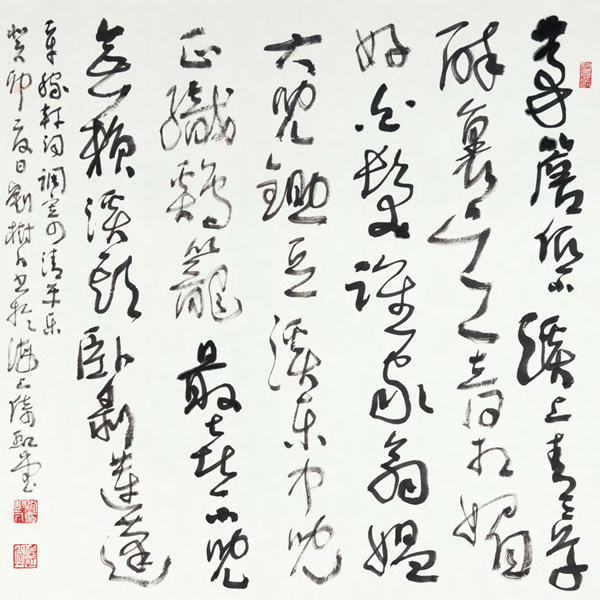 茅簷低小溪上青青草
醉裏吴音相媚
好白髮誰家翁媪
大兒鋤豆溪東中兒
正織鷄籠最喜小兒
無賴溪頭卧剥蓮蓬
辛稼軒詞調寄清平樂
癸卯夏日劉樹人書於海上堂